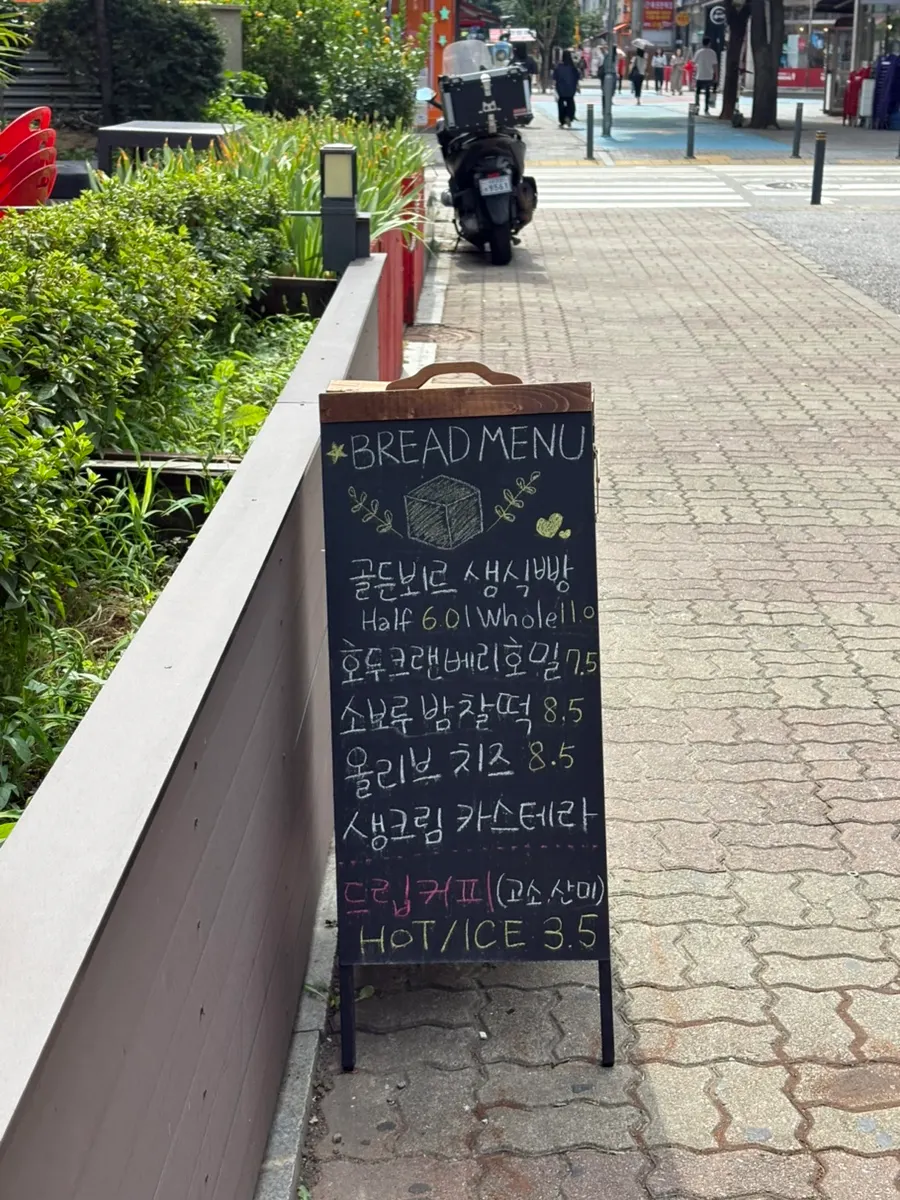 BREAD MENU
골든보르 생식빵
Half 6.0 | Whole 11.0
호두크랜베리호밀 7.5
소보루 밤찰떡 8.5
올리브 치즈 8.5
생크림 카스테라
드립커피 (고소.산미)
HOT/ICE 3.5